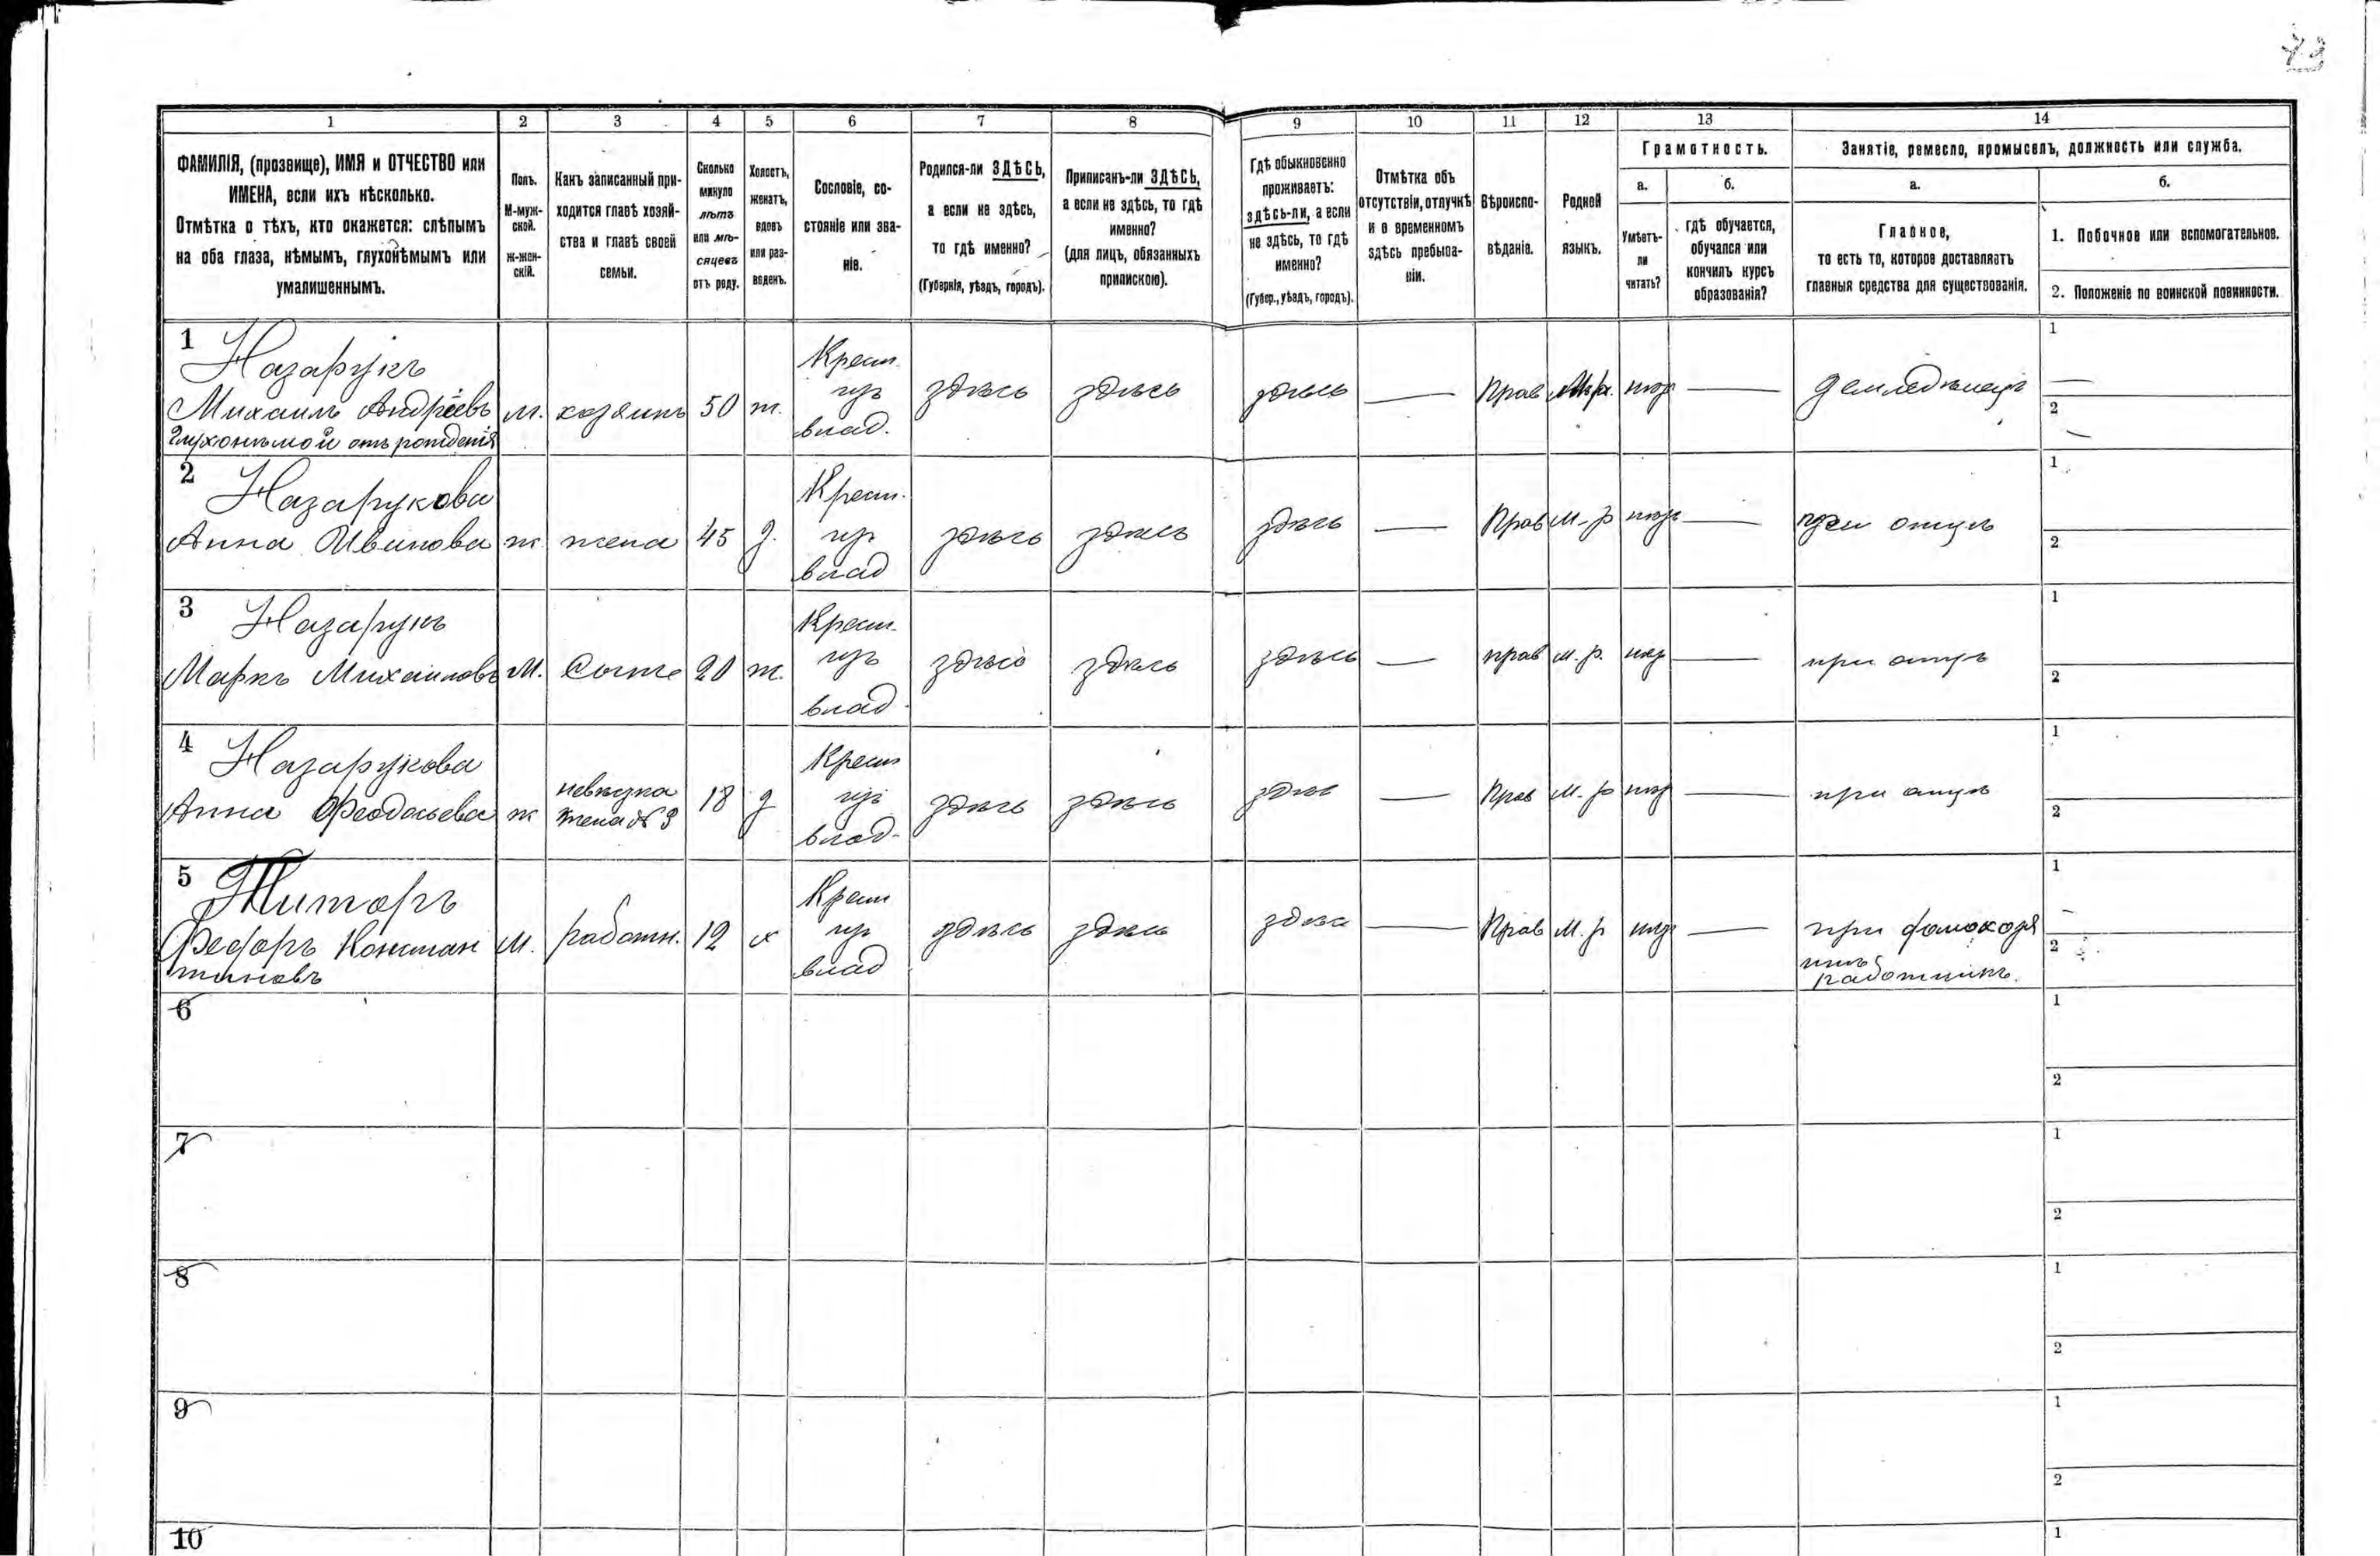 73
1 2 3 4 5 6 7 8 9 10 11 12 13 14
ФАМИЛІЯ, (прозвище), ИМЯ и ОТЧЕСТВО или
ИМЕНА, если ихъ нѣсколько.
Отмѣтка о тѣхъ, кто окажется: слѣпымъ
на оба глаза, нѣмымъ, глухонѣмымъ или
умалишеннымъ.
Полъ.
М-муж-
ской.
ж-жен-
скій.
Какъ записанный при-
ходится главѣ хозяй-
ства и главѣ своей
семьи.
Сколько
минуло
лѣтъ
или мѣ-
сяцевъ
отъ роду.
Холостъ,
женатъ,
вдовъ
или раз-
веденъ.
Сословіе, со-
стояніе или зва-
ніе.
Родился-ли ЗДѢСЬ,
а если не здѣсь,
то гдѣ именно?
(Губернія, уѣздъ, городъ).
Приписанъ-ли ЗДѢСЬ,
а если не здѣсь, то гдѣ
именно?
(для лицъ, обязанныхъ
припискою).
Гдѣ обыкновенно
проживаетъ:
здѣсь-ли, а если
не здѣсь, то гдѣ
именно?
(Губер., уѣздъ, городъ).
Отмѣтка объ
отсутствіи, отлучкѣ
и о временномъ
здѣсь пребыва-
ніи.
Вѣроиспо-
вѣданіе.
Родной
языкъ.
Грамотность.
а.
Умѣетъ-
ли
читать?
б.
гдѣ обучается,
обучался или
кончилъ курсъ
образованія?
Занятіе, ремесло, промыселъ, должность или служба.
а.
Главное,
то есть то, которое доставляетъ
главныя средства для существованія.
б.
1. Побочное или вспомогательное.
2. Положеніе по воинской повинности.
1 Назарукъ
Михаилъ Андреевъ
глухонѣмой отъ рожденія
м. хозяинъ 50 ж.
Крест.
изъ
влад.
здѣсь здѣсь здѣсь — Прав М.р. нѣтъ — земледѣлецъ
1 —
2 —
2 Назарукова
Анна Иванова ж жена 45 з.
Крест.
изъ
влад
здѣсь здѣсь здѣсь — Прав М-р нѣтъ — при отцѣ
1
2
3 Назарукъ
Маркъ Михаиловъ М. Сынъ 20 ж.
Крест.
изъ
влад
здѣсь здѣсь здѣсь — прав м.р. нѣтъ — при отцѣ
1
2
4 Назарукова
Анна Феодосьева ж
невѣстка
жена № 3
18 з
Крест
изъ
влад.
здѣсь здѣсь здѣсь — Прав М.-р нѣтъ — при отцѣ
1
2
5 Титоръ
Федоръ Констан
тиновъ
М. работн. 12 х
Крест
изъ
влад
здѣсь здѣсь здѣсь — Прав М.р нѣтъ —
при домохозя
инѣ
работникъ.
1 —
2
6
1
2
7
1
2
8
1
2
9
1
2
10
1